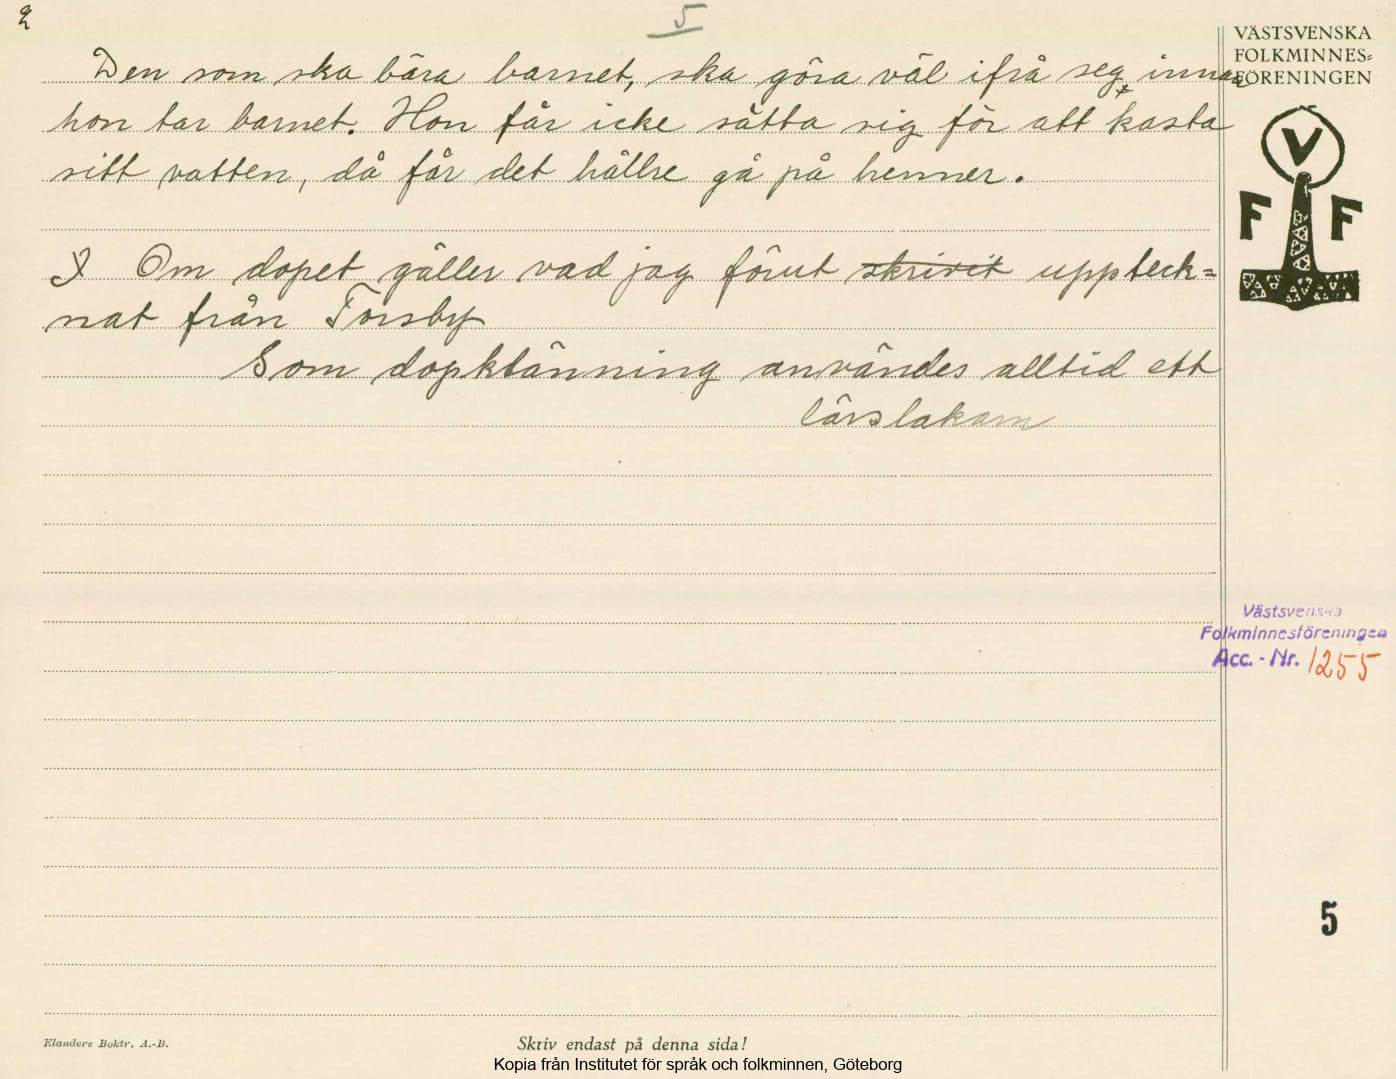 2
5
VÄSTSVENSKA
FOLKMINNES=
FÖRENINGEN
Den som ska bära barnet, ska göra väl ifrå seg innan
hon tar barnet. Hon får icke sätta sig för att kasta
sitt vatten, då får det hällre gå på henner.
V
F F
I Om dopet gäller vad jag förut skrivit uppteck=
nat från Torsby
Som dopklänning användes alltid ett
lärslakam
Västsvenska
Folkminnesföreningen
Acc. - Nr. 1255
5
Elanders Boktr. A.-B.
Skriv endast på denna sida!
Kopia från Institutet för språk och folkminnen, Göteborg